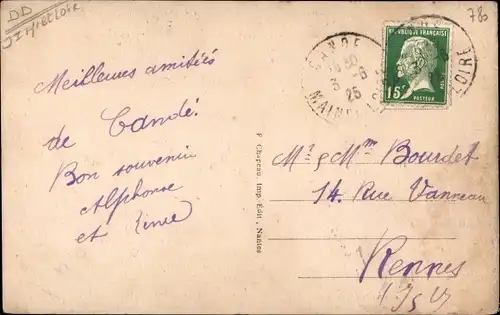 DD
780
Meilleures amitiés
de Candé.
Bon souvenir
Alphonse
et
F Chapeau, Imp.-Edit, Nantes
CANDE
3 -6
25
MAINE
LOIRE
REPUBLIQUE FRANÇAISE
15c
PASTEUR
Mr & Mme Bourdet
14, Rue Vanneau
Rennes